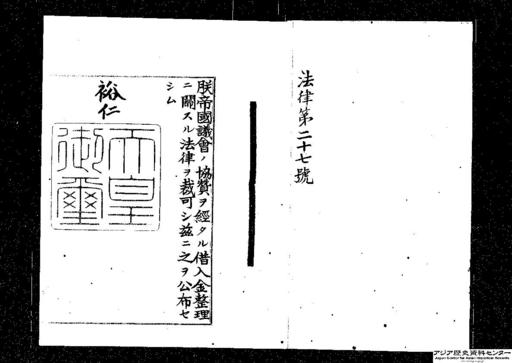 法律第二十七號
朕帝國議會ノ協贊ヲ經タル借入金整理
ニ關スル法律ヲ裁可シ茲ニ之ヲ公布セ
シム
裕仁
天皇
御璽
アジア歴史資料センター
Japan Center for Asian Historical Records